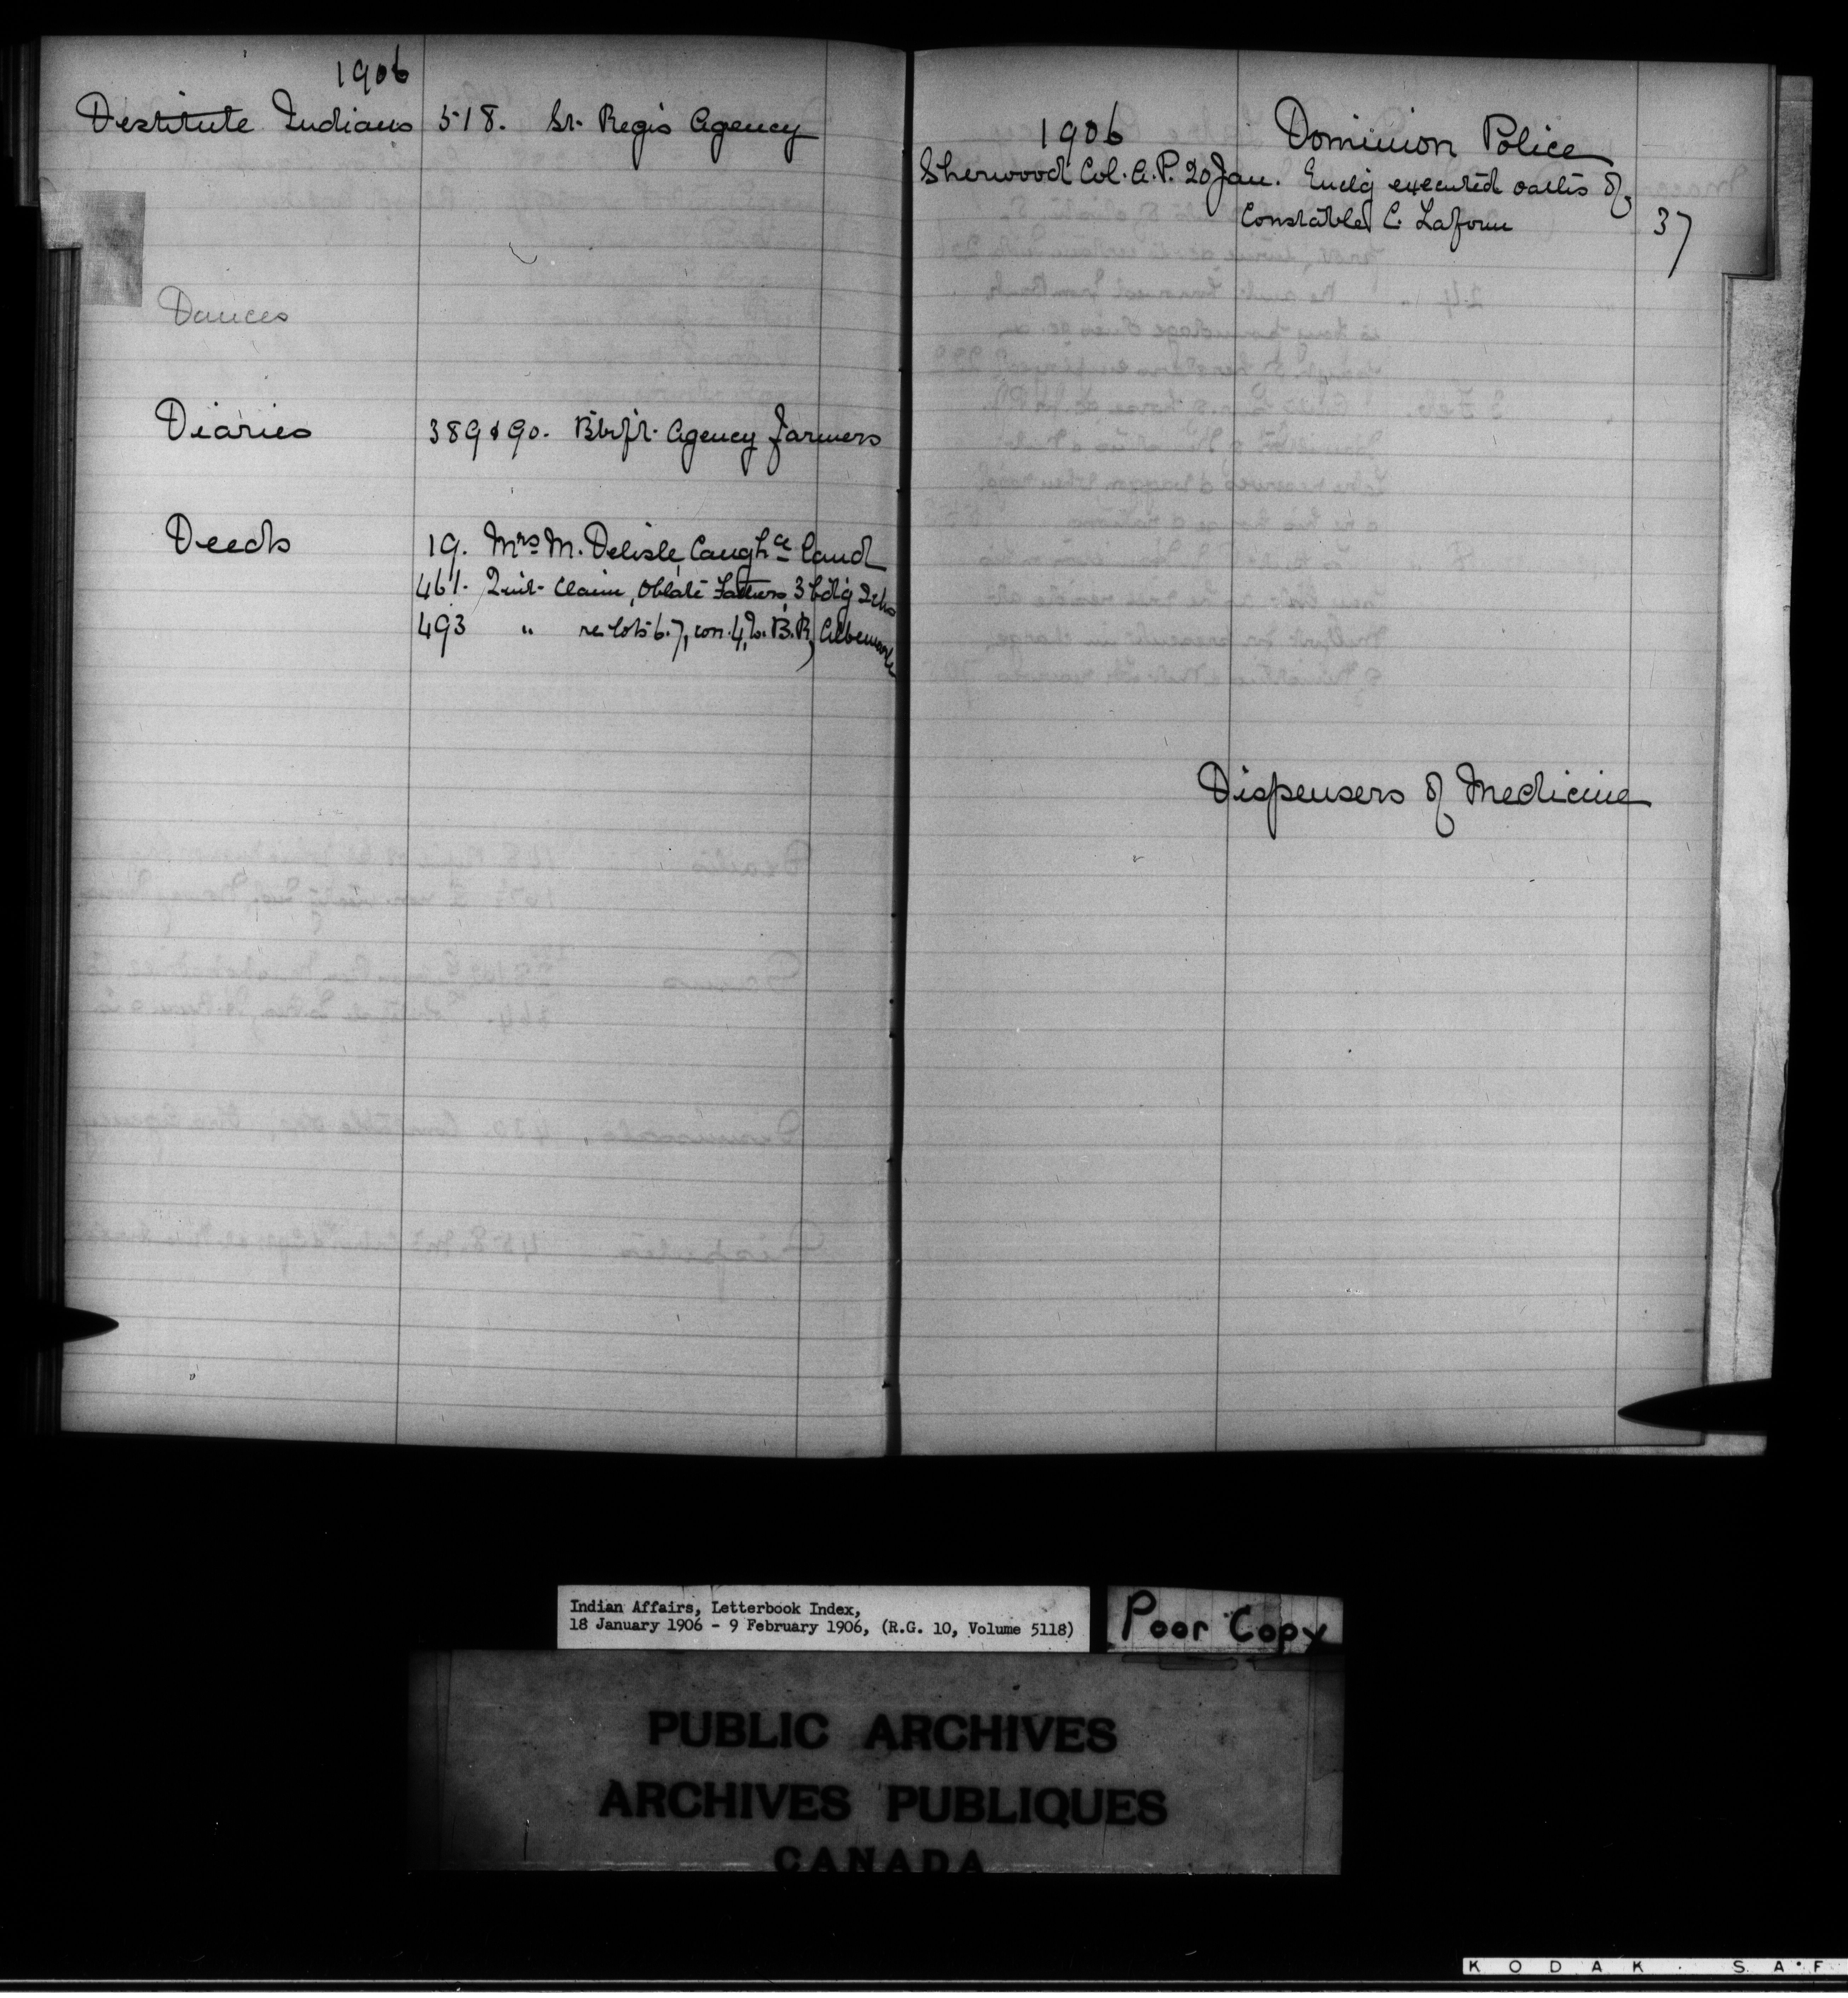 1906
Destitute Indians 518. St. Regis Agency
Dances
Diaries 389 & 90. Btlfd. Agency farmers
Deeds 19. Mrs M. Delisle, Caughce land
461. Quit Claim, Oblate Fathers, 3 bdg Schs
493 " re lots 6.7, con. 4, E. B. R, Albemarle
1906 Dominion Police
Sherwood Col. A. P. 20 Jan. Enclg executed oaths of
Constable C. Laforce 37
Dispensers of Medicine
Indian Affairs, Letterbook Index,
18 January 1906 - 9 February 1906, (R.G. 10, Volume 5118)
Poor Copy
PUBLIC ARCHIVES
ARCHIVES PUBLIQUES
CANADA
KODAK · SA·F